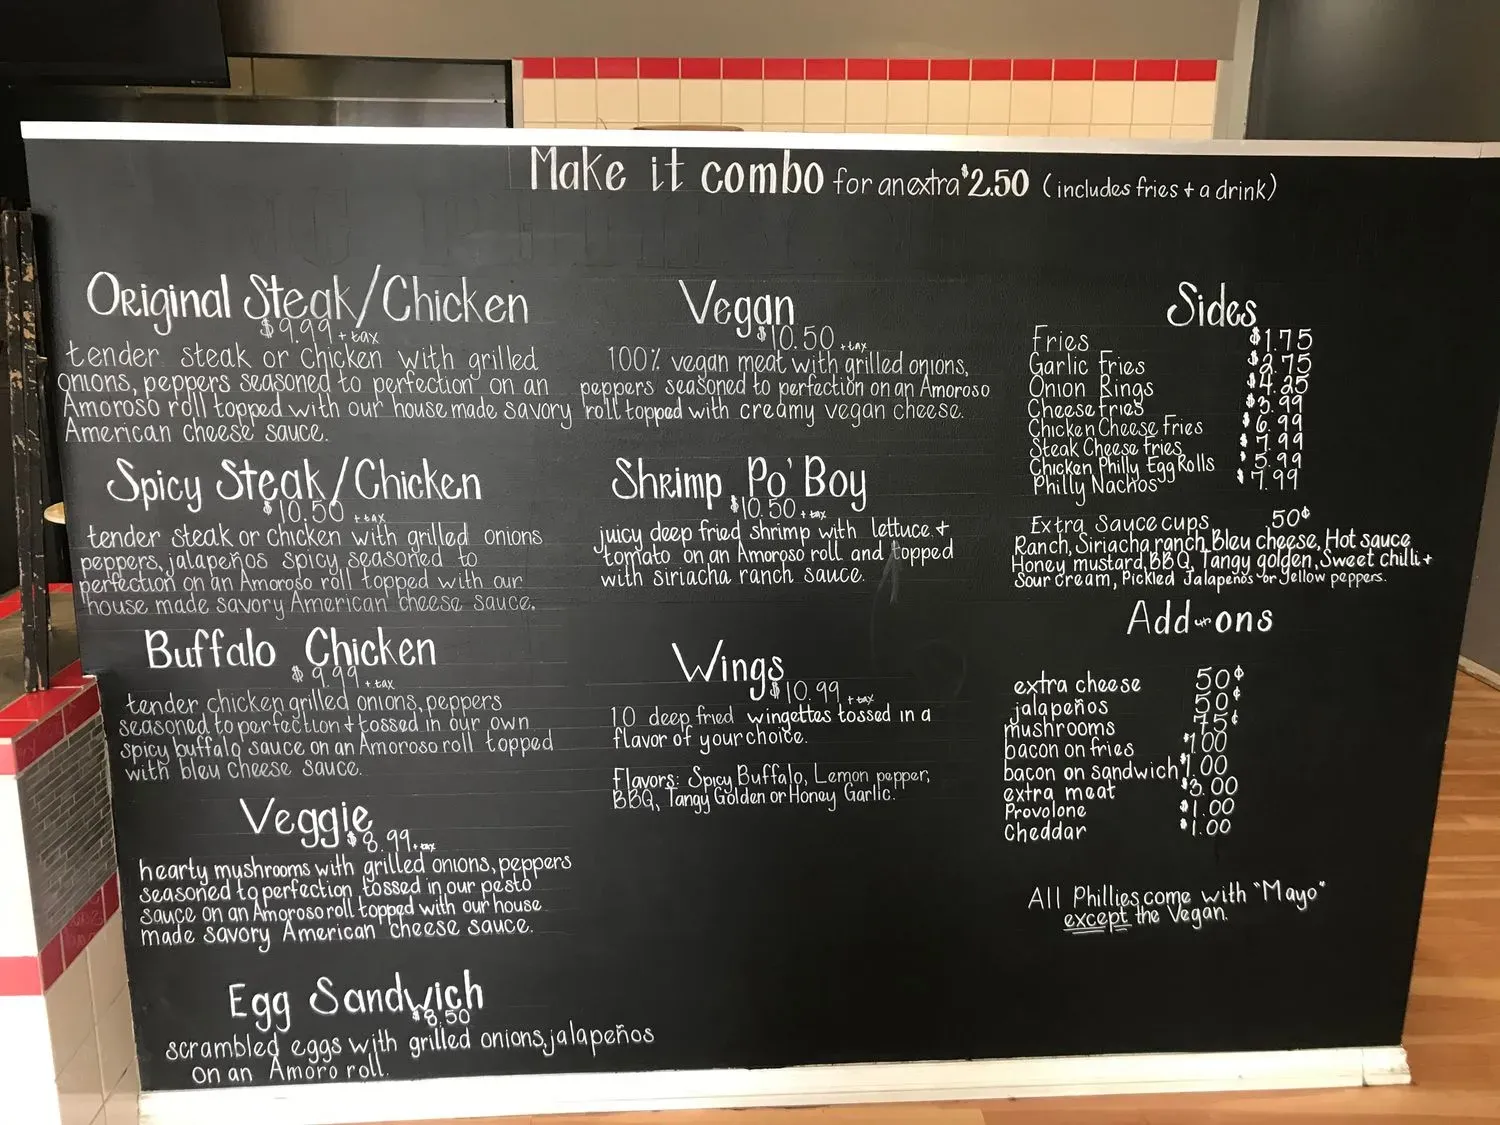 Make it combo for an extra $2.50 (includes fries + a drink)
Original Steak/Chicken
$9.99 + tax
tender steak or chicken with grilled
onions, peppers seasoned to perfection on an
Amoroso roll topped with our house made savory
American cheese sauce.
Spicy Steak/Chicken
$10.50 + tax
tender steak or chicken with grilled onions
peppers, jalapeños spicy seasoned to
perfection on an Amoroso roll topped with our
house made savory American cheese sauce.
Buffalo Chicken
$9.99 + tax
tender chicken grilled onions, peppers
seasoned to perfection + tossed in our own
spicy buffalo sauce on an Amoroso roll topped
with bleu cheese sauce.
Veggie
$8.99 + tax
hearty mushrooms with grilled onions, peppers
seasoned to perfection tossed in our pesto
sauce on an Amoroso roll topped with our house
made savory American cheese sauce.
Egg Sandwich
$8.50
scrambled eggs with grilled onions, jalapeños
on an Amoro roll.
Vegan
$10.50 + tax
100% vegan meat with grilled onions,
peppers seasoned to perfection on an Amoroso
roll topped with creamy vegan cheese.
Shrimp Po' Boy
$10.50 + tax
juicy deep fried shrimp with lettuce +
tomato on an Amoroso roll and topped
with siriacha ranch sauce.
Wings
$10.99 + tax
10 deep fried wingettes tossed in a
flavor of your choice.
Flavors: Spicy Buffalo, Lemon pepper,
BBQ, Tangy Golden or Honey Garlic.
Sides
Fries $1.75
Garlic Fries $2.75
Onion Rings $4.25
Cheese fries $3.99
Chicken Cheese Fries $6.99
Steak Cheese Fries $7.99
Chicken Philly Egg Rolls $5.99
Philly Nachos $7.99
Extra Sauce cups 50¢
Ranch, Siriacha ranch, Bleu cheese, Hot sauce
Honey mustard, BBQ, Tangy golden, Sweet chilli +
Sour cream, Pickled Jalapeños or yellow peppers.
Add-ons
extra cheese 50¢
jalapeños 50¢
mushrooms 75¢
bacon on fries $1.00
bacon on sandwich $1.00
extra meat $3.00
Provolone $1.00
Cheddar $1.00
All Phillies come with "Mayo"
except the Vegan.